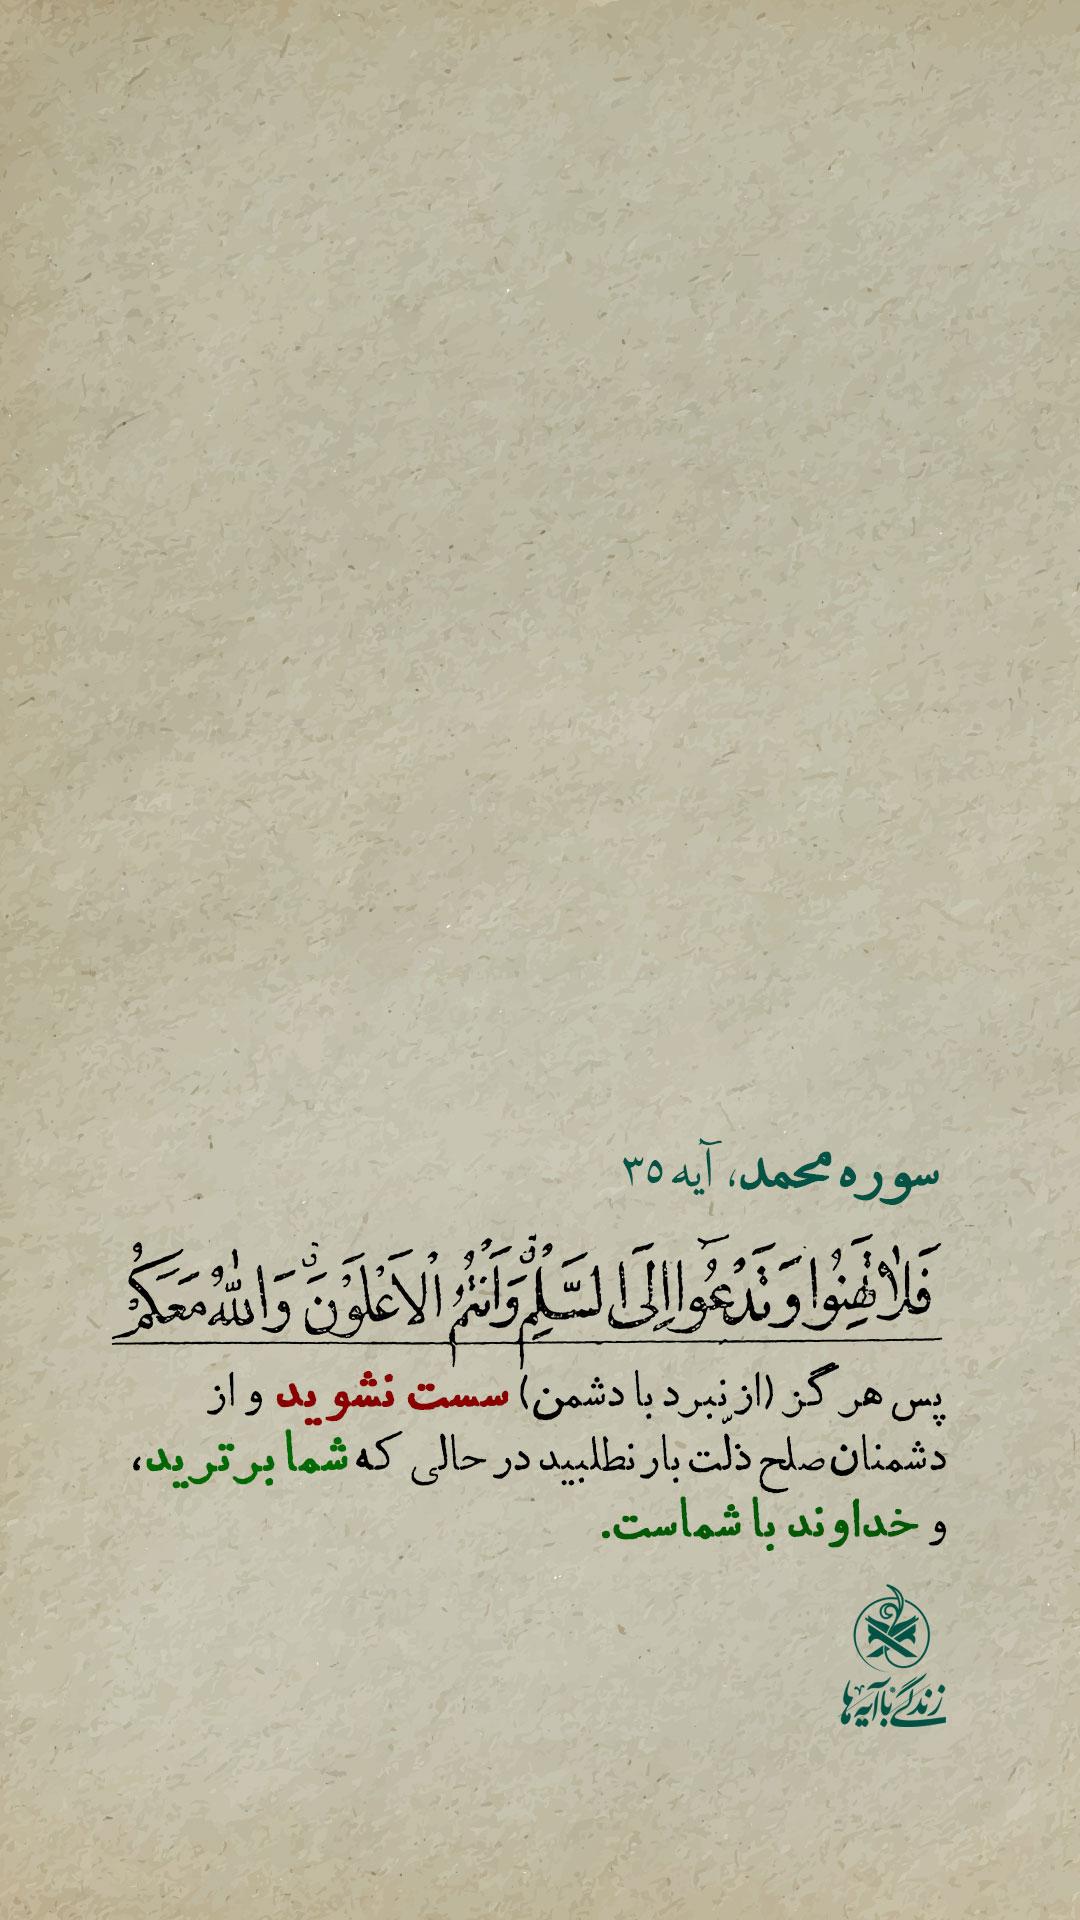 سوره محمد، آیه ۳۵
فَلَا تَهِنُوا وَ تَدْعُوا إِلَى السَّلْمِ وَأَنْتُمُ الْأَعْلَوْنَ وَاللَّهُ مَعَكُمْ
پس هرگز (از نبرد با دشمن) سست نشوید و از
دشمنان صلح ذلّت بار نطلبید در حالی که شما برترید،
و خداوند با شماست.
زندگی با آیه‌ها